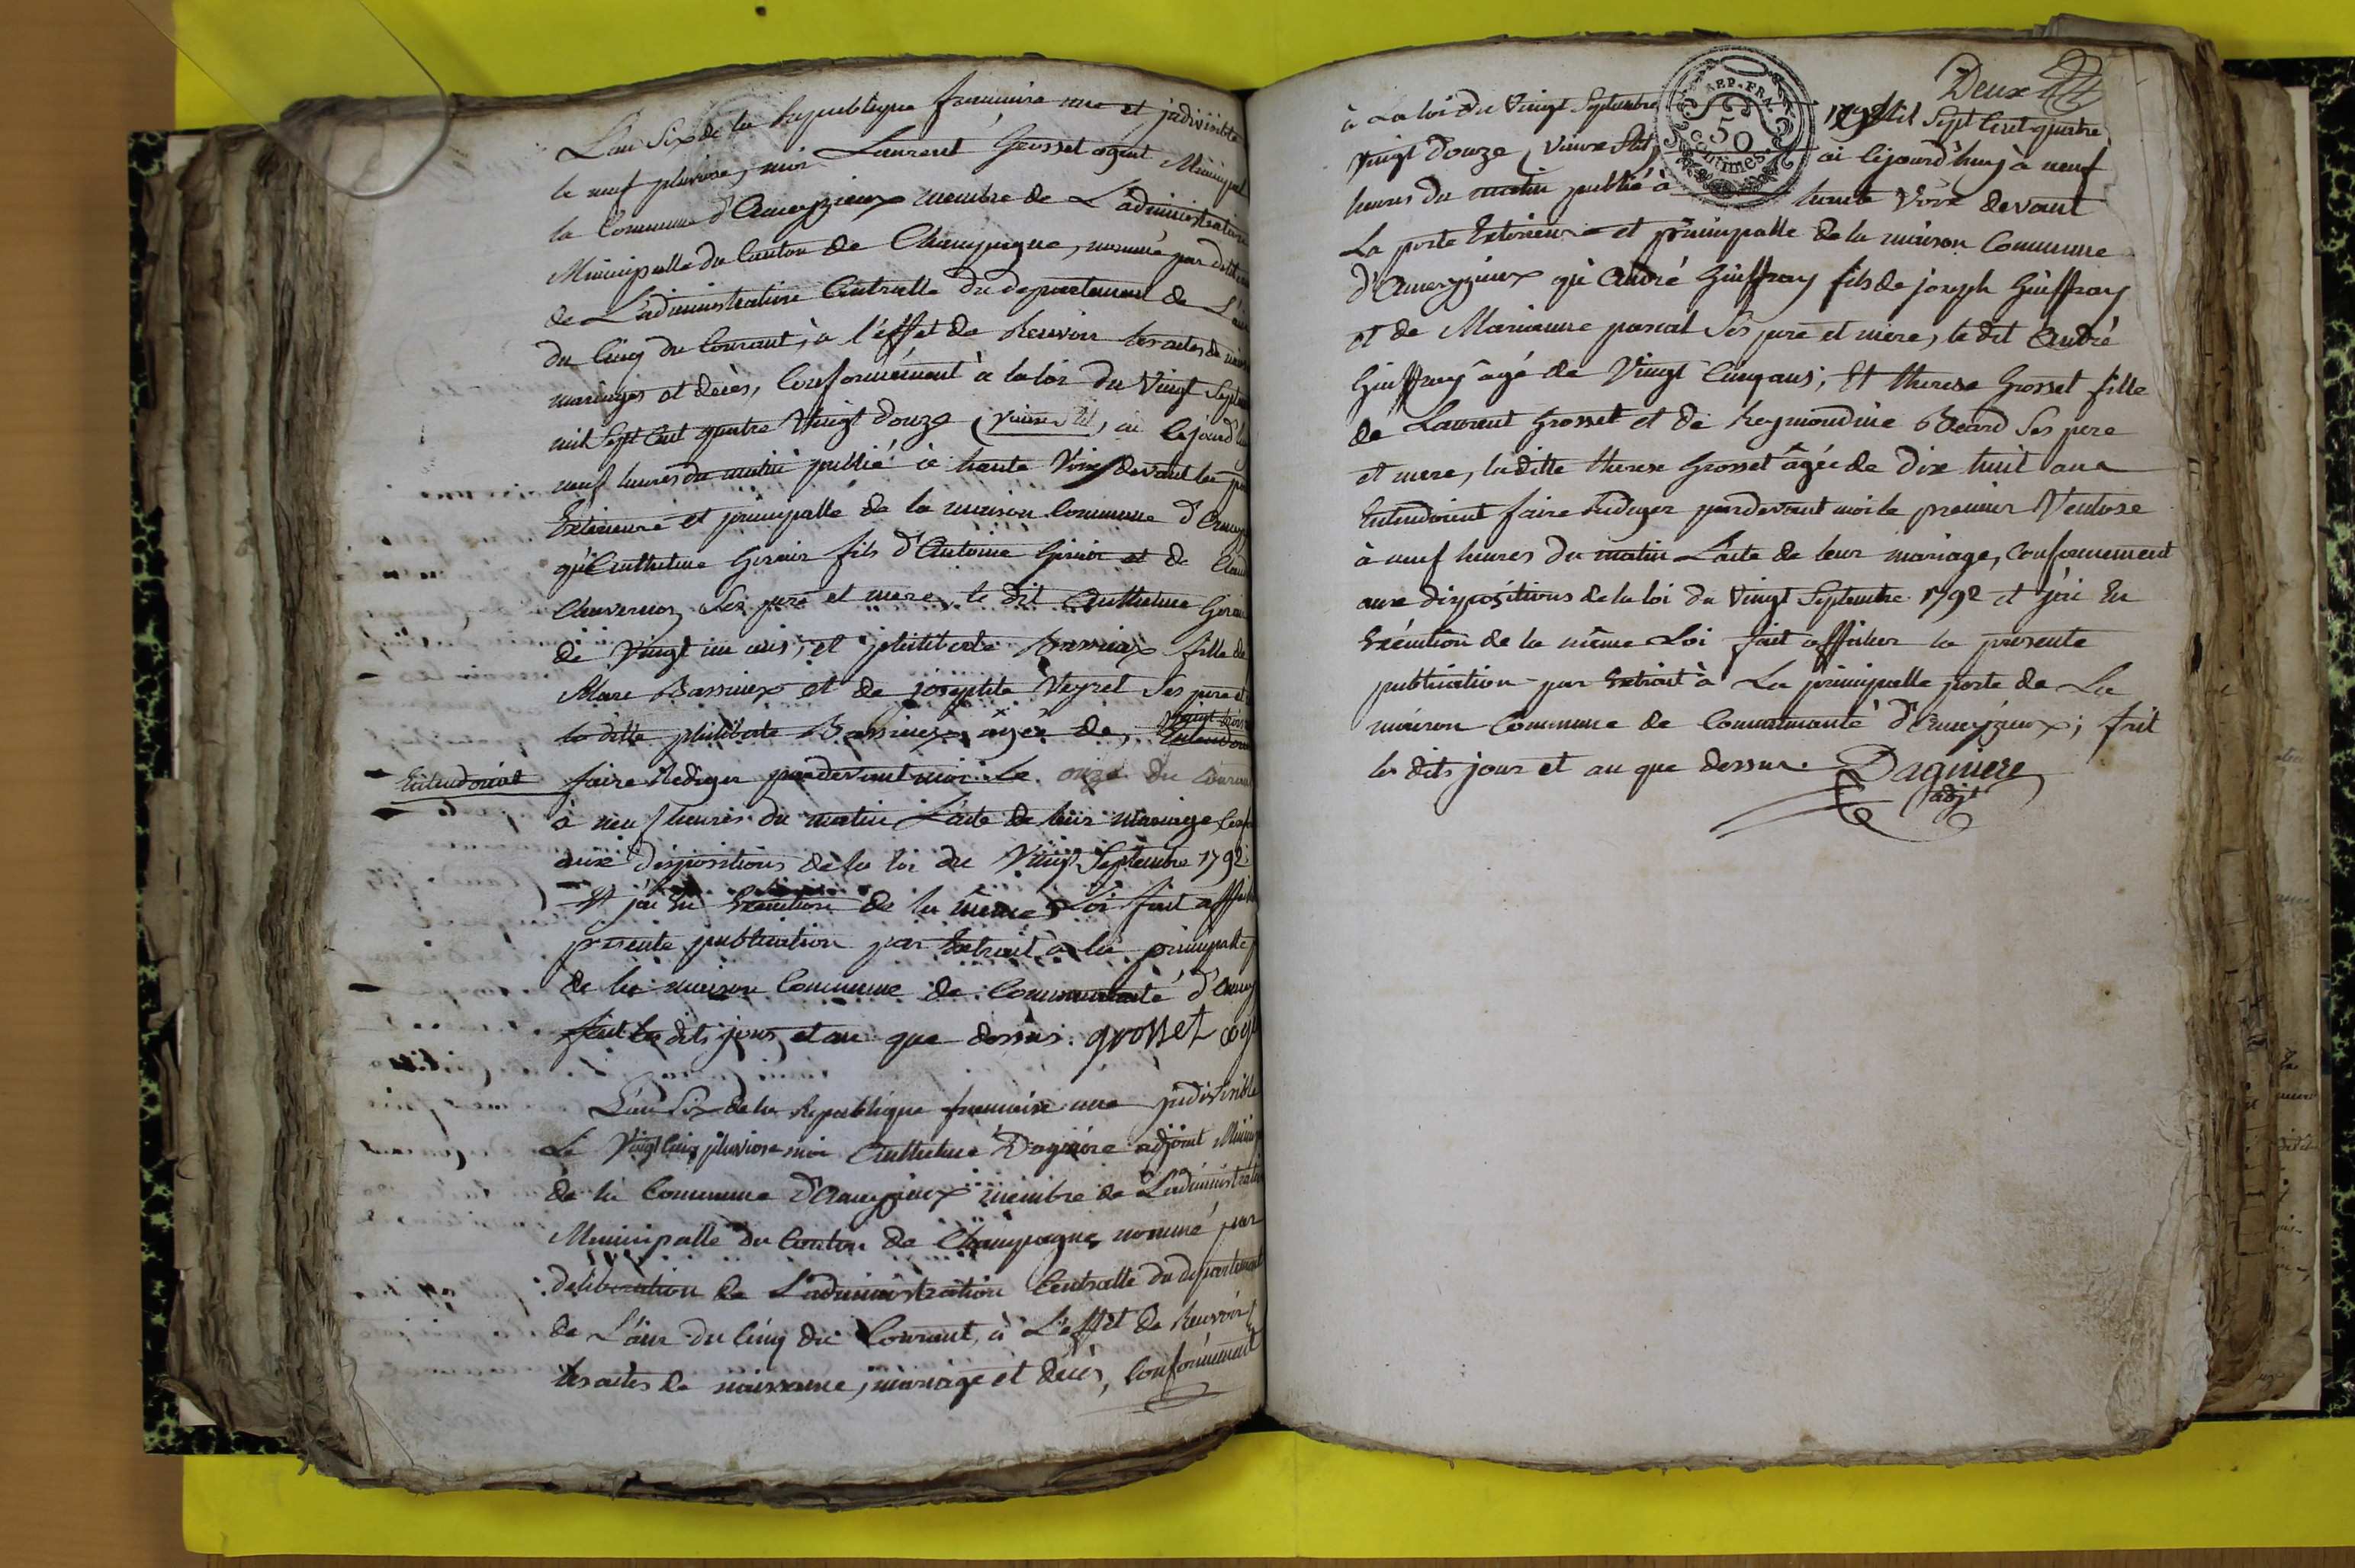 L'an Six de la Republique francaise une et indivisible
le neuf pluviose, moi Laurent Grosset agent Municipal
la Commune d'Ameyzieux membre de L'administration
Municipalle du Canton de Champagne, nommé par
de L'administration Centralle du departement de L'ain
du Cinq du Courant, à l'effet de Recevoir les actes de
mariages et decès, Conformément à la loi du Vingt Septembre
mil Sept Cent quatre Vingt douze (vieux Stil) ai cejourd'hui
neuf heures du matin publié à haute Voix devant la
Exterieure et principalle de la maison Commune d'
qu'Anthelme fils d'Antoine et de
Ses pere et mere, le dit Anthelme
de Vingt un ans, et philiberte Bassieux fille de
Marc Bassieux et de josephte Veyret Ses pere et
la ditte philiberte Bassieux agée de,
Entendoient faire Rediger pardevant moi Le onze du Courant
à neuf heures du matin L'acte de leur mariage
aux dispositions de la loi du Vingt Septembre 1792
Et j'ai En Execution de la même Loi fait
presente publication par Extrait à la principalle
de la maison Commune de Communauté d'
fait les dits jour et an que dessus. grosset
L'an Six de la Republique francaise une indivisible
Le Vingt Cinq pluviose moi Anthelme Dagniere adjoint
de la Commune d'Ameyzieux membre de L'administration
Municipalle du Canton de Champagne nommé par
deliberation de L'administration Centralle du departement
de L'ain du Cinq du Courant, à L'effet de Recevoir
les actes de naissance, mariage et decès, Conformément
Deux
à La loi du Vingt Septembre 1792 mil Sept Cent quatre
REP. FRA.
50
centimes
Vingt douze (Vieux Stil) ai cejourd'huy à neuf
heures du matin publié à haute Voix devant
La porte Exterieure et principalle de la maison Commune
d'Ameyzieux qu'André Guiffray fils de joseph Guiffray
et de Marianne pascal Ses pere et mere, le dit André
Guiffray âgé de Vingt Cinq ans; Et therese Grosset fille
de Laurent Grosset et de Reymondine Ses pere
et mere, la ditte therese Grosset âgée de Dix huit ans
Entendoient faire Rediger pardevant moi le premier Ventose
à neuf heures du matin L'acte de leur mariage, Conformement
aux dispositions de la loi du Vingt Septembre 1792 et j'ai En
Execution de la même Loi fait afficher la presente
publication par Extrait à La principalle porte de La
maison Commune de Communauté d'Ameyzieux; fait
les dits jour et an que dessus. Dagniere
adjt